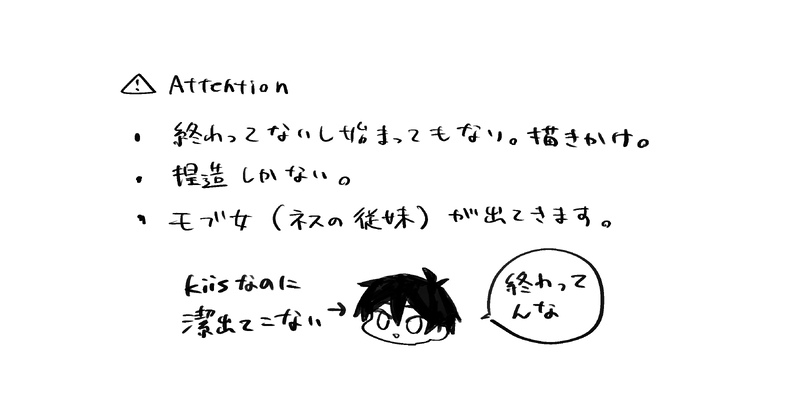 ⚠ Attention
・終わってないし始まってもない。描きかけ。
・捏造しかない。
・モブ女（ネスの従妹）が出てきます。
kiisなのに
潔出てこない→
終わって
んな